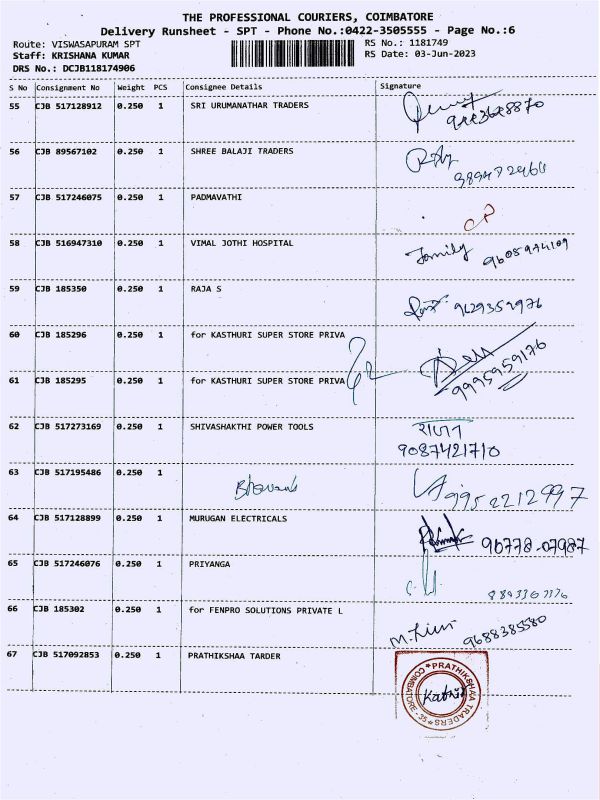 THE PROFESSIONAL COURIERS, COIMBATORE
Delivery Runsheet - SPT - Phone No.:0422-3505555 - Page No.:6
Route: VISWASAPURAM SPT RS No.: 1181749
Staff: KRISHANA KUMAR RS Date: 03-Jun-2023
DRS No.: DCJB118174906
S No Consignment No Weight PCS Consignee Details Signature
55 CJB 517128912 0.250 1 SRI URUMANATHAR TRADERS
56 CJB 89567102 0.250 1 SHREE BALAJI TRADERS
57 CJB 517246075 0.250 1 PADMAVATHI
58 CJB 516947310 0.250 1 VIMAL JOTHI HOSPITAL Family
59 CJB 185350 0.250 1 RAJA S 9629352976
60 CJB 185296 0.250 1 for KASTHURI SUPER STORE PRIVA
61 CJB 185295 0.250 1 for KASTHURI SUPER STORE PRIVA 9995959176
62 CJB 517273169 0.250 1 SHIVASHAKTHI POWER TOOLS
9087421710
63 CJB 517195486 0.250 1 9952212997
64 CJB 517128899 0.250 1 MURUGAN ELECTRICALS 96778-07987
65 CJB 517246076 0.250 1 PRIYANGA
66 CJB 185302 0.250 1 for FENPRO SOLUTIONS PRIVATE L 9688385580
67 CJB 517092853 0.250 1 PRATHIKSHAA TARDER
PRATHIKSHAA TRADERS
COIMBATORE - 35